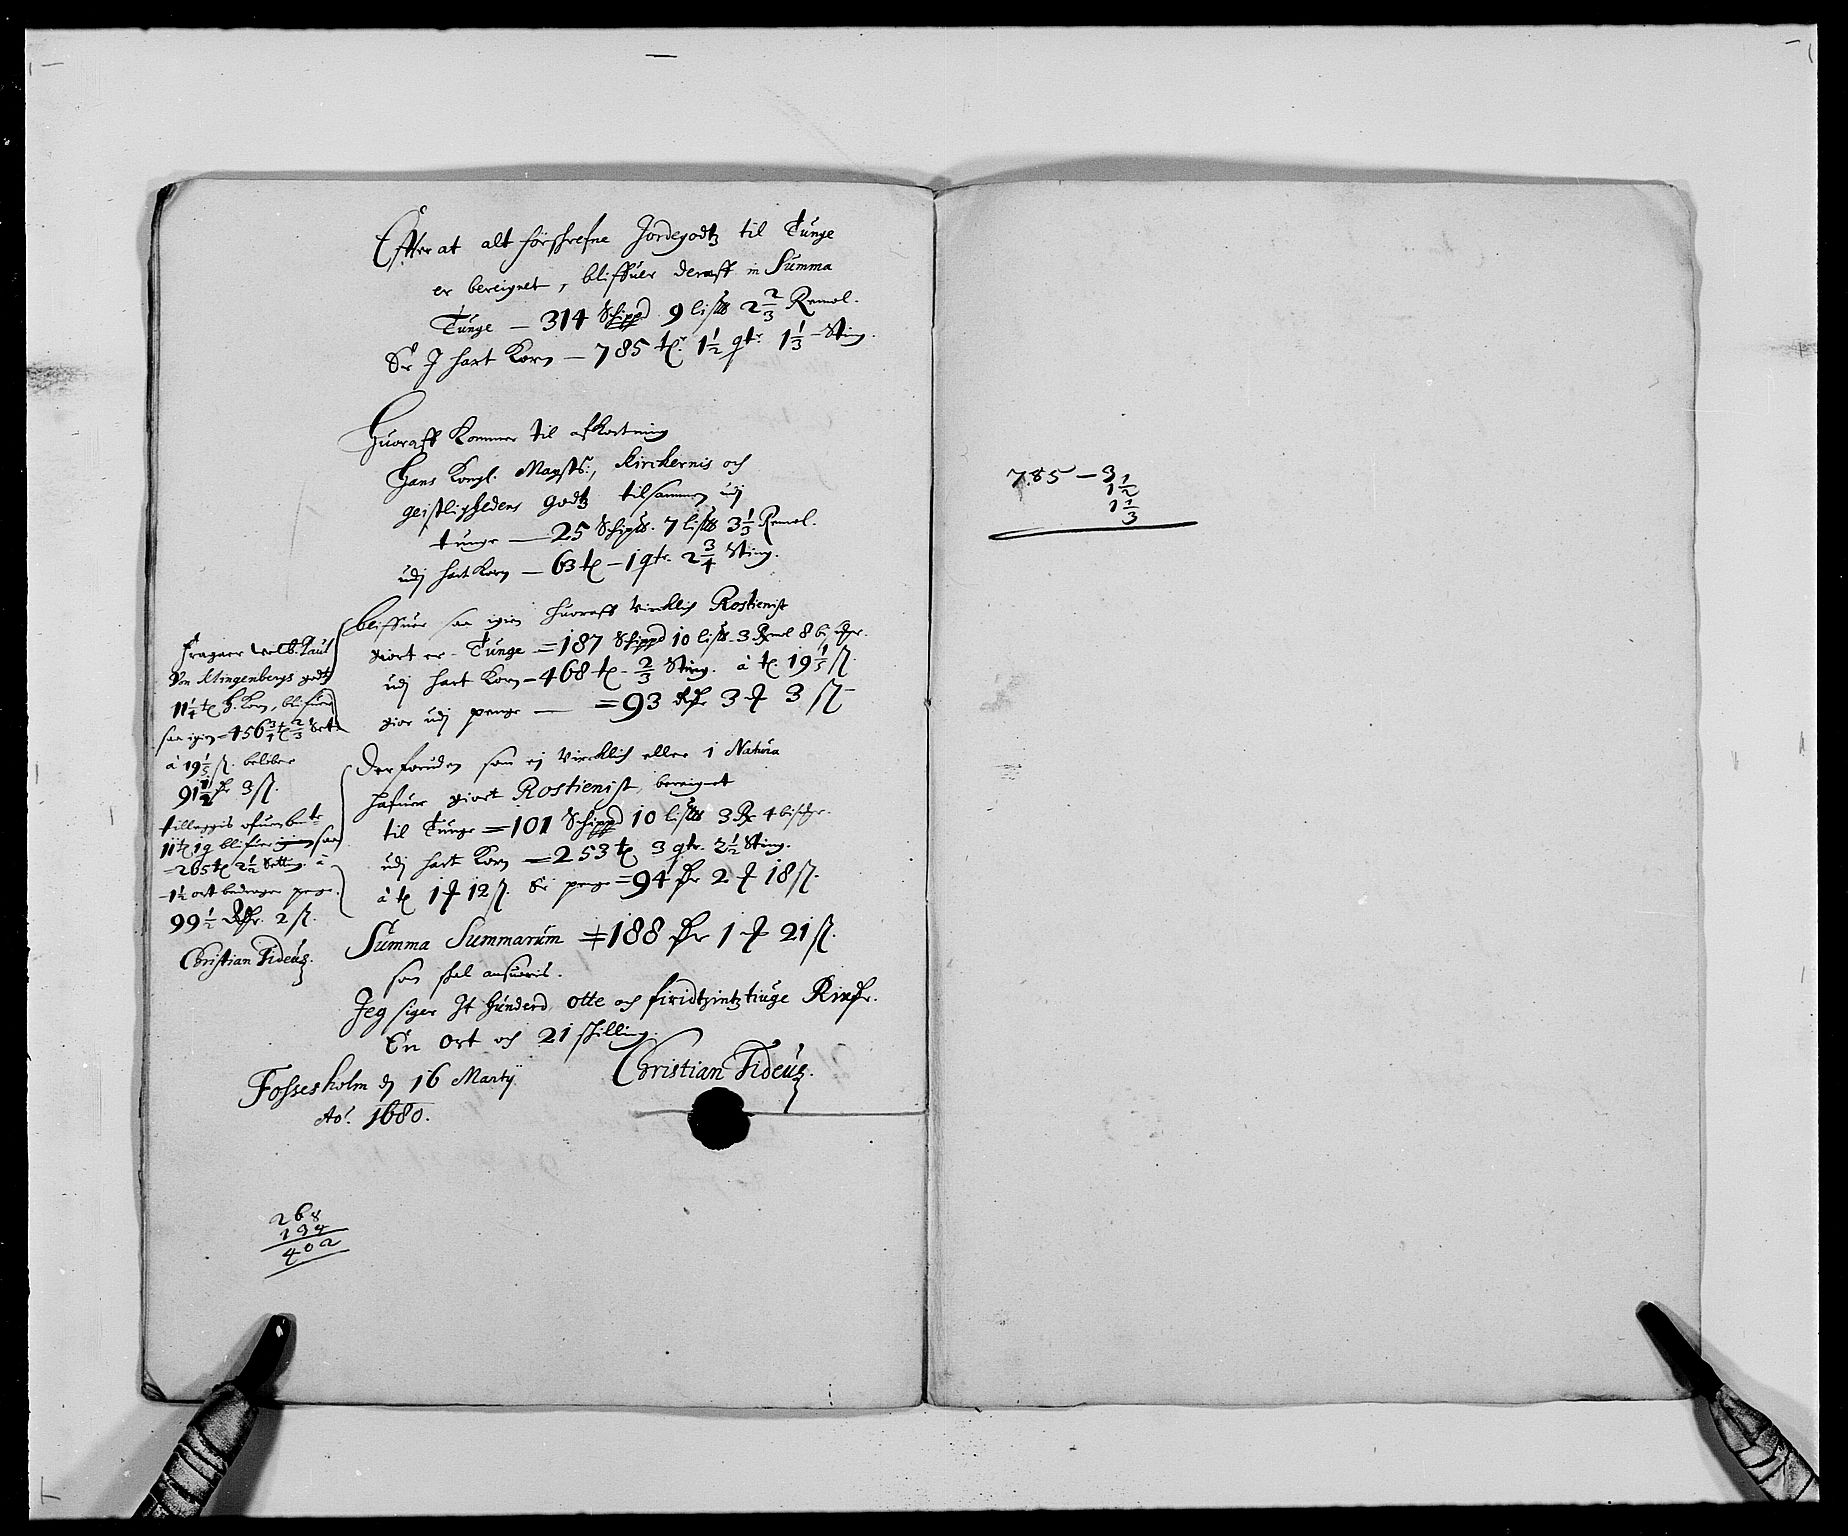 Effter at alt förschrefne Jordegodtz til Tunge
er bereignet, bliffuer deraff in Summa
Tunge — 314 Schippd 9 lispd 2 2/3 Remol.
Er J hart Korn — 785 tr. 1 1/2 qtr. 1 1/3 Sting.
Huoraff Kommer til afkortning
Hans Kongl. Maysts:, Kirckernis och
geistlighedens godtz tilsammen udj
tunge — 25 Schipd. 7 lispd 3 1/3 Remol.
udj hart Korn — 63 t — 1 qtr. 2 3/4 Sting.
bliffuer saa igien huoraff Virchlich Rostienist
giort er - Tunge = 187 Schippd 10 lispd. 3 Rmol 8
udj hart Korn — 468 t - 2/3 Sting. à t. 19 1/5 ß.
gior udj penge — = 93 Rdr 3 3 ß
Derforuden som ej Virchlich eller i Natura
hafuer giort Rostienist, bereignet
til Tunge = 101 Schippd 10 lispd 3 R 4
udj hart Korn = 253 t 3 qtr. 2 1/2 Sting.
à t 1 12 ß. Er penge = 94 dr 2 18 ß.
Summa Summarum = 188 dr 1 21 ß.
som skal ansuaris.
Jeg siger It Hunderd, otte och firidtzintztiuge Rixdr.
En Ort och 21 skilling.
Fossesholm d 16 Martij
Christian Fideus.
Ao. 1680.
Fragaar welb. Paul
Von Klingenbergs godtz
11 1/4 t h. Korn, blifuer
saa igien = 456 3/4 t 2/3 Set
à 19 1/5 ß. beleber
91 1/2 dr 3 ß.
tilleggis
11 t 1 q blifuer saa
= 265 t 2 1/2 Setting à
1 1/2 ort bedrager penge
99 1/2 Rdr. 2 ß.
Christian Fideus.
268
134
402
785 — 3
1 1/2
1 1/3